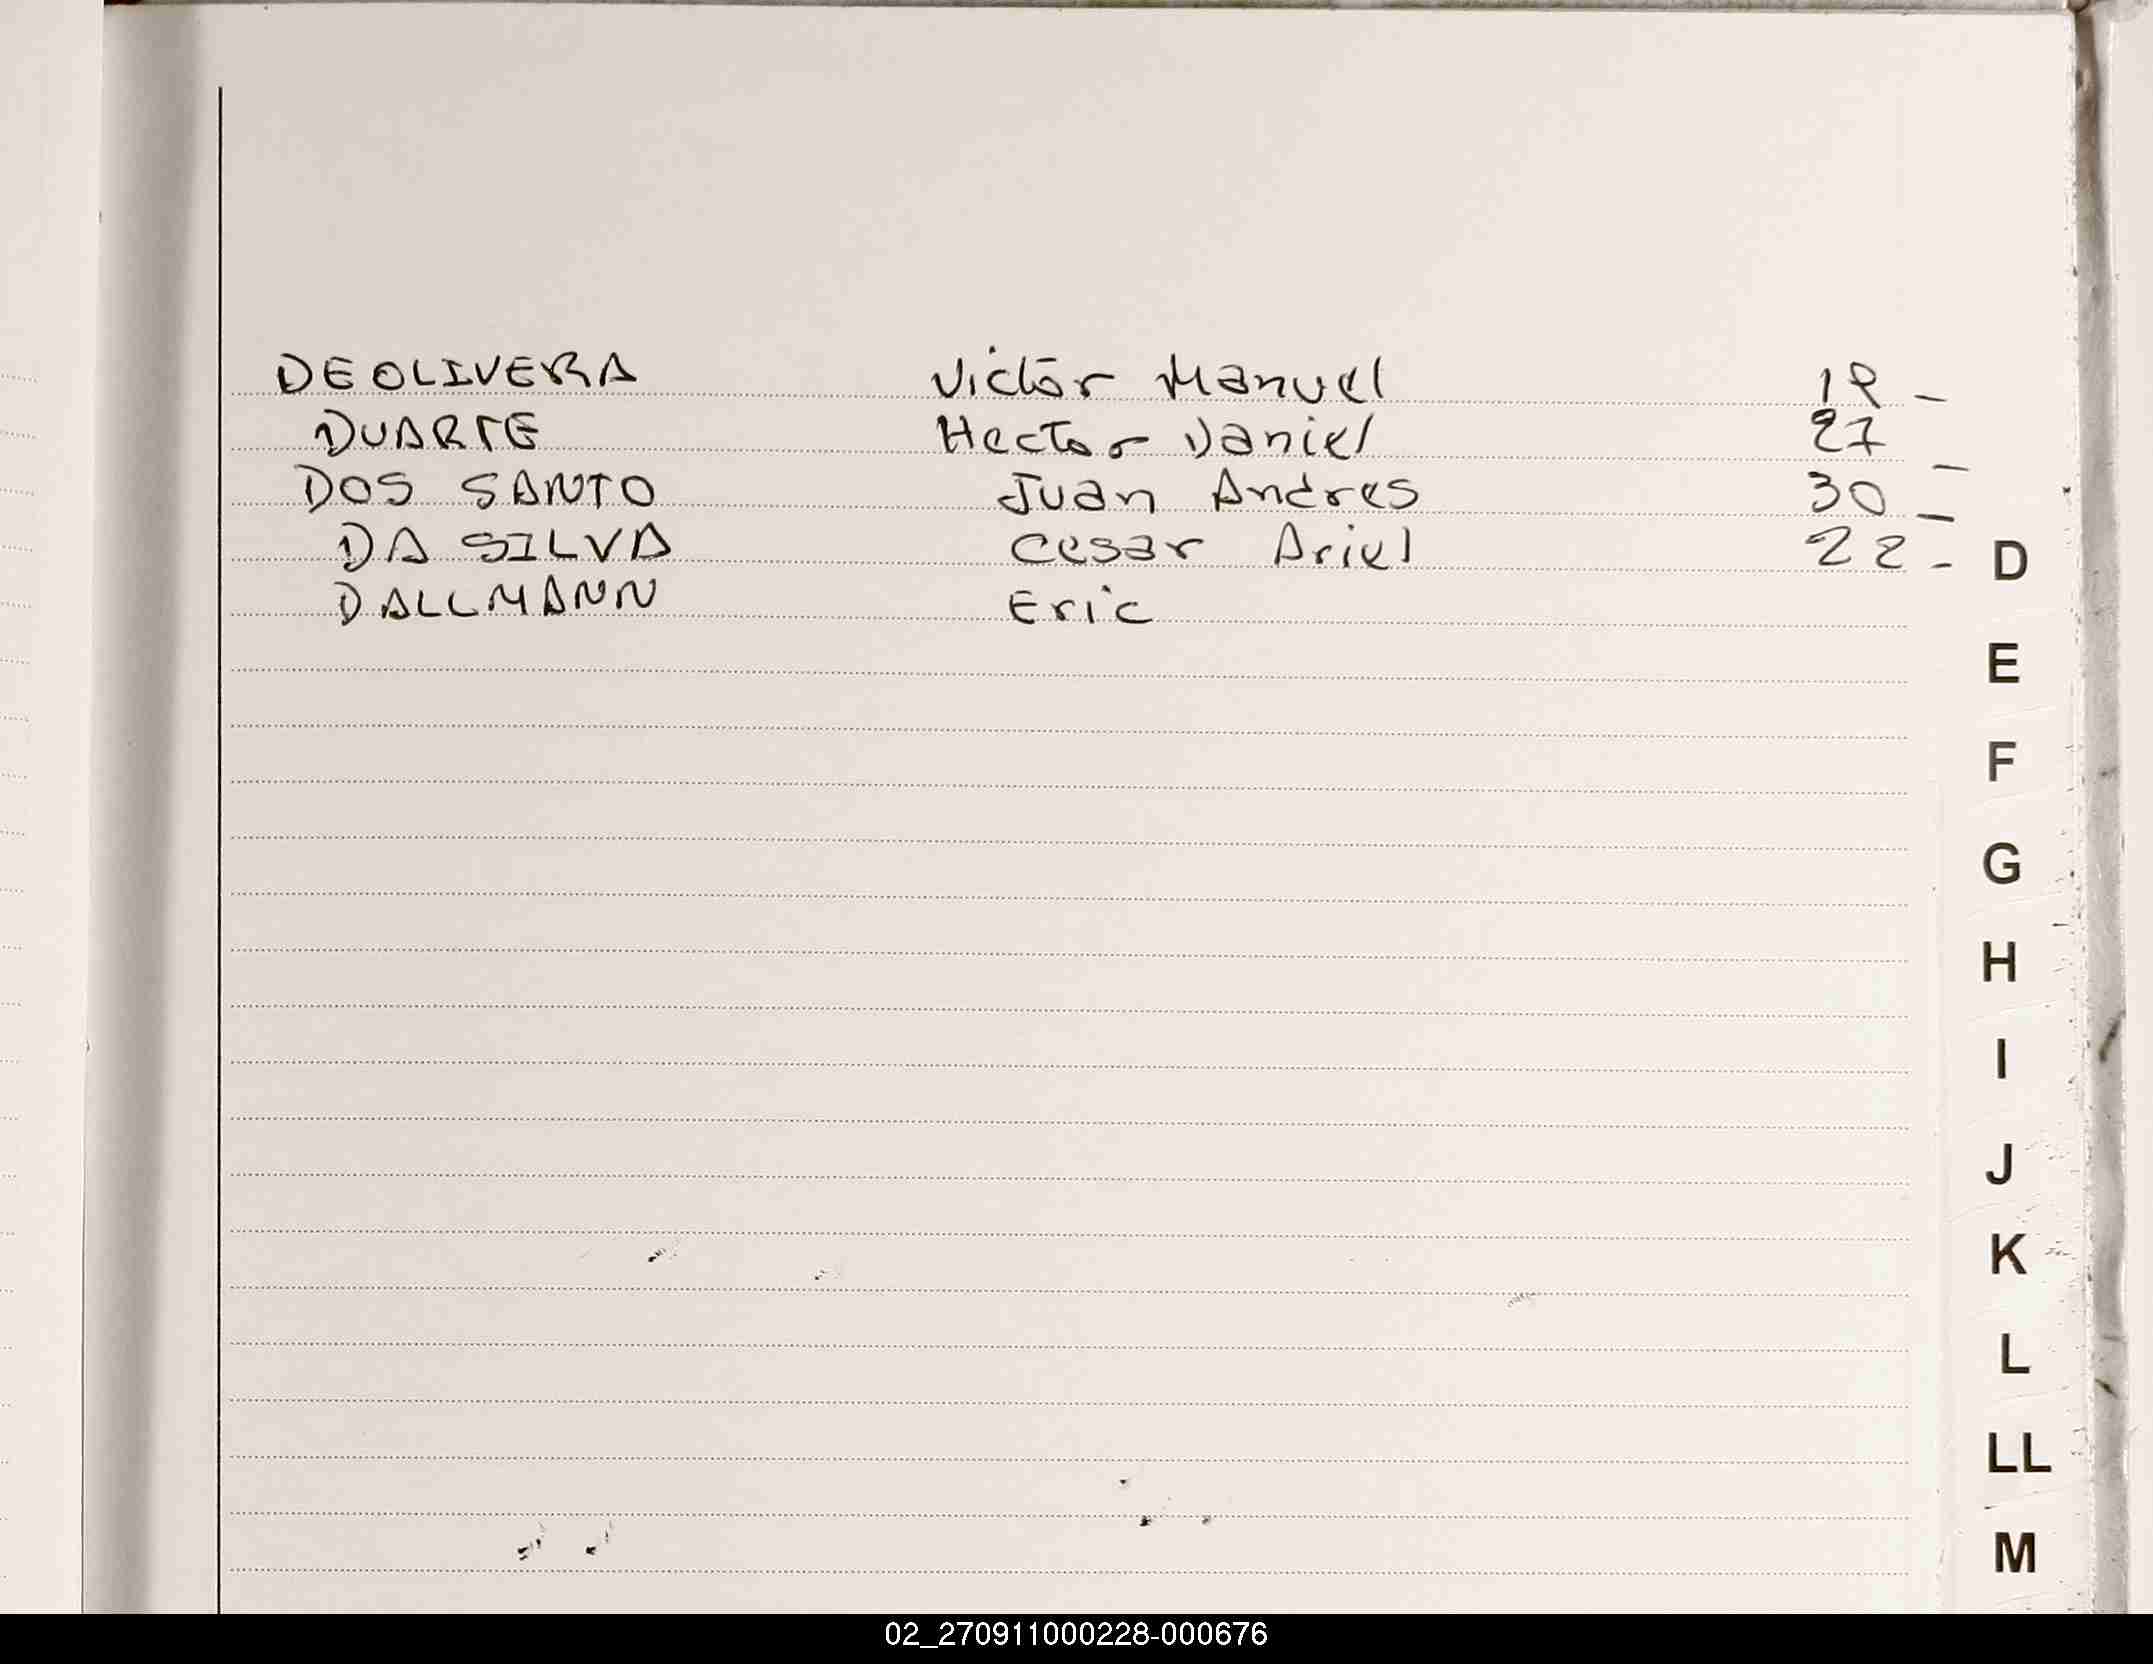 DEOLIVERA Victor Manuel 19 -
DUARTE Hector Daniel 27 -
DOS SANTO Juan Andres 30 -
DA SILVA Cesar Ariel 22 -
DALLMANN Eric
D
E
F
G
H
I
J
K
L
LL
M
02_270911000228-000676